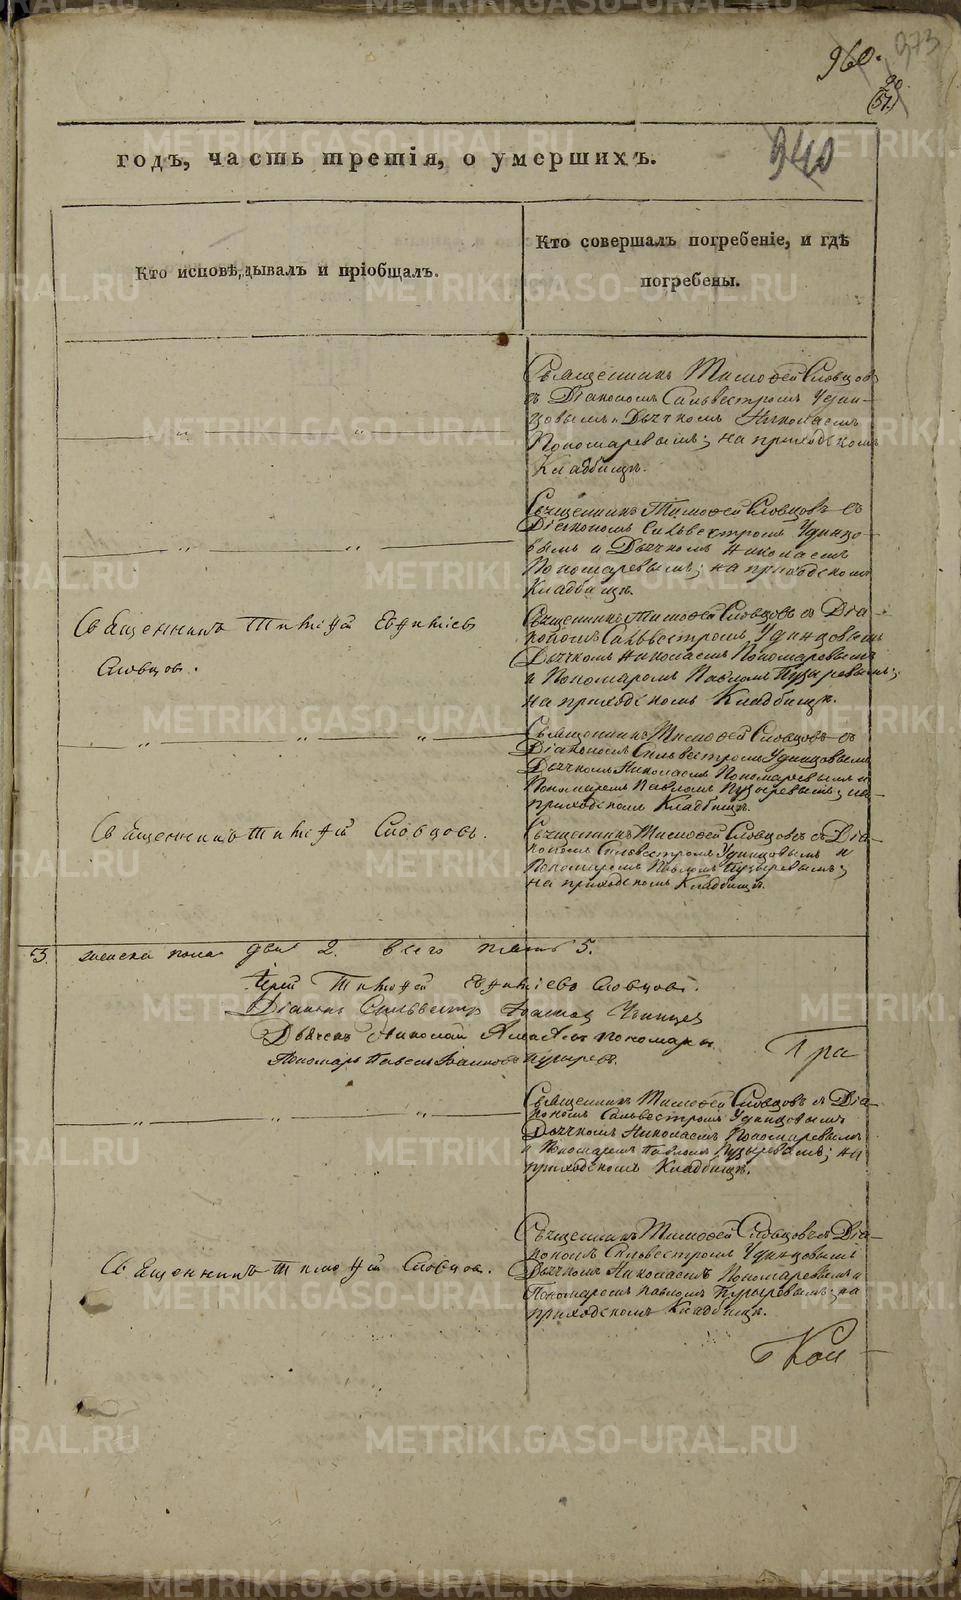 960.
973
20
(57)
940
годъ, часть третія, о умершихъ.
Кто исповѣдывалъ и пріобщалъ.
Кто совершалъ погребеніе, и гдѣ
погребены.
Священникъ Тимофей Словцовъ
съ Діакономъ Сильвестромъ Удин-
цовымъ и Дьячкомъ Николаемъ
Пономаревымъ; на приходскомъ
Кладбищѣ.
— „ — „ —
Священникъ Тимофей Словцовъ съ
Діакономъ Сильвестромъ Удинцо-
вымъ и Дьячкомъ Николаемъ
Пономаревымъ; на приходскомъ
Кладбищѣ.
— „ — „ —
Священникъ Тимоѳей Евѳиміевъ
Словцовъ.
Священникъ Тимофей Словцовъ съ Діа-
кономъ Сильвестромъ Удинцовымъ
Дьячкомъ Николаемъ Пономаревымъ
и Пономаремъ Павломъ Пузыревымъ;
на приходскомъ Кладбищѣ.
— „ — „ — „ —
Священникъ Тимофей Словцовъ съ
Діакономъ Сильвестромъ Удинцовымъ
Дьячкомъ Николаемъ Пономаревымъ и
Пономаремъ Павломъ Пузыревымъ; на
приходскомъ Кладбищѣ.
Священникъ Тимоѳей Словцовъ.
Священникъ Тимофей Словцовъ съ Діа-
кономъ Сильвестромъ Удинцовымъ и
Пономаремъ Павломъ Пузыревымъ;
на приходскомъ Кладбищѣ.
3. женска пола два 2. всего пять 5.
Іерей Тимоѳей Евѳиміевъ Словцовъ.
Діаконъ Сильвестръ Удинцев
Дьячекъ Николай Пономаревъ
Пономарь Павелъ Іоанновъ Пузыревъ.
Гра
— „ — „ — „ —
Священникъ Тимофей Словцовъ съ Діа-
кономъ Сильвестромъ Удинцовымъ
Дьячкомъ Николаемъ Пономаревымъ
и Пономаремъ Павломъ Пузыревымъ; на
приходскомъ Кладбищѣ.
Священникъ Тимоѳей Словцов.
Священникъ Тимофей Словцовъ съ Діа-
кономъ Сильвестромъ Удинцовымъ
Дьячкомъ Николаемъ Пономаревымъ и
Пономаремъ Павломъ Пузыревымъ; на
приходскомъ Кладбищѣ.
Кол
METRIKI.GASO-URAL.RU